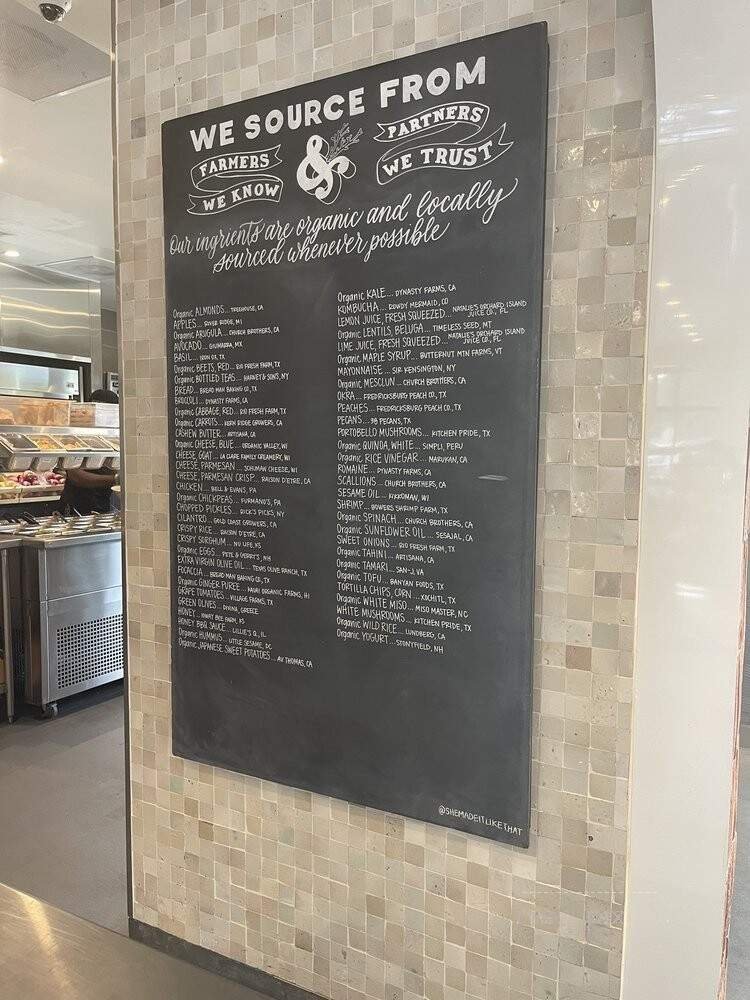 WE SOURCE FROM
FARMERS
WE KNOW
&
PARTNERS
WE TRUST
Our ingrients are organic and locally
sourced whenever possible
Organic ALMONDS... TREEHOUSE, CA
APPLES... RIVER RIDGE, MI
Organic ARUGULA... CHURCH BROTHERS, CA
AVOCADO... GIUMARRA, MX
BASIL... IRON OX, TX
Organic BEETS, RED... RIO FRESH FARM, TX
Organic BOTTLED TEAS... HARNEY & SONS, NY
BREAD... BREAD MAN BAKING CO, TX
BROCCOLI... DYNASTY FARMS, CA
Organic CABBAGE, RED... RIO FRESH FARM, TX
Organic CARROTS... KERN RIDGE GROWERS, CA
CASHEW BUTTER... ARTISANA, CA
Organic CHEESE, BLUE... ORGANIC VALLEY, WI
CHEESE, GOAT... LA CLARE FAMILY CREAMERY, WI
CHEESE, PARMESAN... SCHUMAN CHEESE, WI
CHEESE, PARMESAN CRISP... RAISON D'ETRE, CA
CHICKEN... BELL & EVANS, PA
Organic CHICKPEAS... FURMANO'S, PA
CHOPPED PICKLES... RICK'S PICKS, NY
CILANTRO... GOLD COAST GROWERS, CA
CRISPY RICE... RAISON D'ETRE, CA
CRISPY SORGHUM... NU LIFE, KS
Organic EGGS... PETE & GERRY'S, NH
EXTRA VIRGIN OLIVE OIL... TEXAS OLIVE RANCH, TX
FOCACCIA... BREAD MAN BAKING CO, TX
Organic GINGER PUREE... KAUAI ORGANIC FARMS, HI
GRAPE TOMATOES... VILLAGE FARMS, TX
GREEN OLIVES... DIVINA, GREECE
HONEY... BEE FARM, KS
HONEY BBQ SAUCE... LILLIE'S Q, IL
Organic HUMMUS... LITTLE SESAME, DC
Organic JAPANESE SWEET POTATOES... AV THOMAS, CA
Organic KALE... DYNASTY FARMS, CA
KOMBUCHA... ROWDY MERMAID, CO
LEMON JUICE, FRESH SQUEEZED... NATALIE'S ORCHARD ISLAND
JUICE CO., FL
Organic LENTILS, BELUGA... TIMELESS SEED, MT
LIME JUICE, FRESH SQUEEZED... NATALIE'S ORCHARD ISLAND
JUICE CO., FL
Organic MAPLE SYRUP... BUTTERNUT MTN FARMS, VT
MAYONNAISE... SIR KENSINGTON, NY
Organic MESCLUN... CHURCH BROTHERS, CA
OKRA... FREDRICKSBURG PEACH CO, TX
PEACHES... FREDRICKSBURG PEACH CO., TX
PECANS... PECANS, TX
PORTOBELLO MUSHROOMS... KITCHEN PRIDE, TX
Organic QUINOA, WHITE... SIMPLI, PERU
Organic RICE VINEGAR... MARUKAN, CA
ROMAINE... DYNASTY FARMS, CA
SCALLIONS... CHURCH BROTHERS, CA
SESAME OIL... KIKKOMAN, WI
SHRIMP... BOWERS SHRIMP FARM, TX
Organic SPINACH... CHURCH BROTHERS, CA
Organic SUNFLOWER OIL... SESAJAL, CA
SWEET ONIONS... RIO FRESH FARM, TX
Organic TAHINI... ARTISANA, CA
Organic TAMARI... SAN-J, VA
Organic TOFU... BANYAN FOODS, TX
TORTILLA CHIPS, CORN... XOCHITL, TX
Organic WHITE MISO... MISO MASTER, NC
WHITE MUSHROOMS... KITCHEN PRIDE, TX
Organic WILD RICE... LUNDBERG, CA
Organic YOGURT... STONYFIELD, NH
@SHEMADEITLIKETHAT